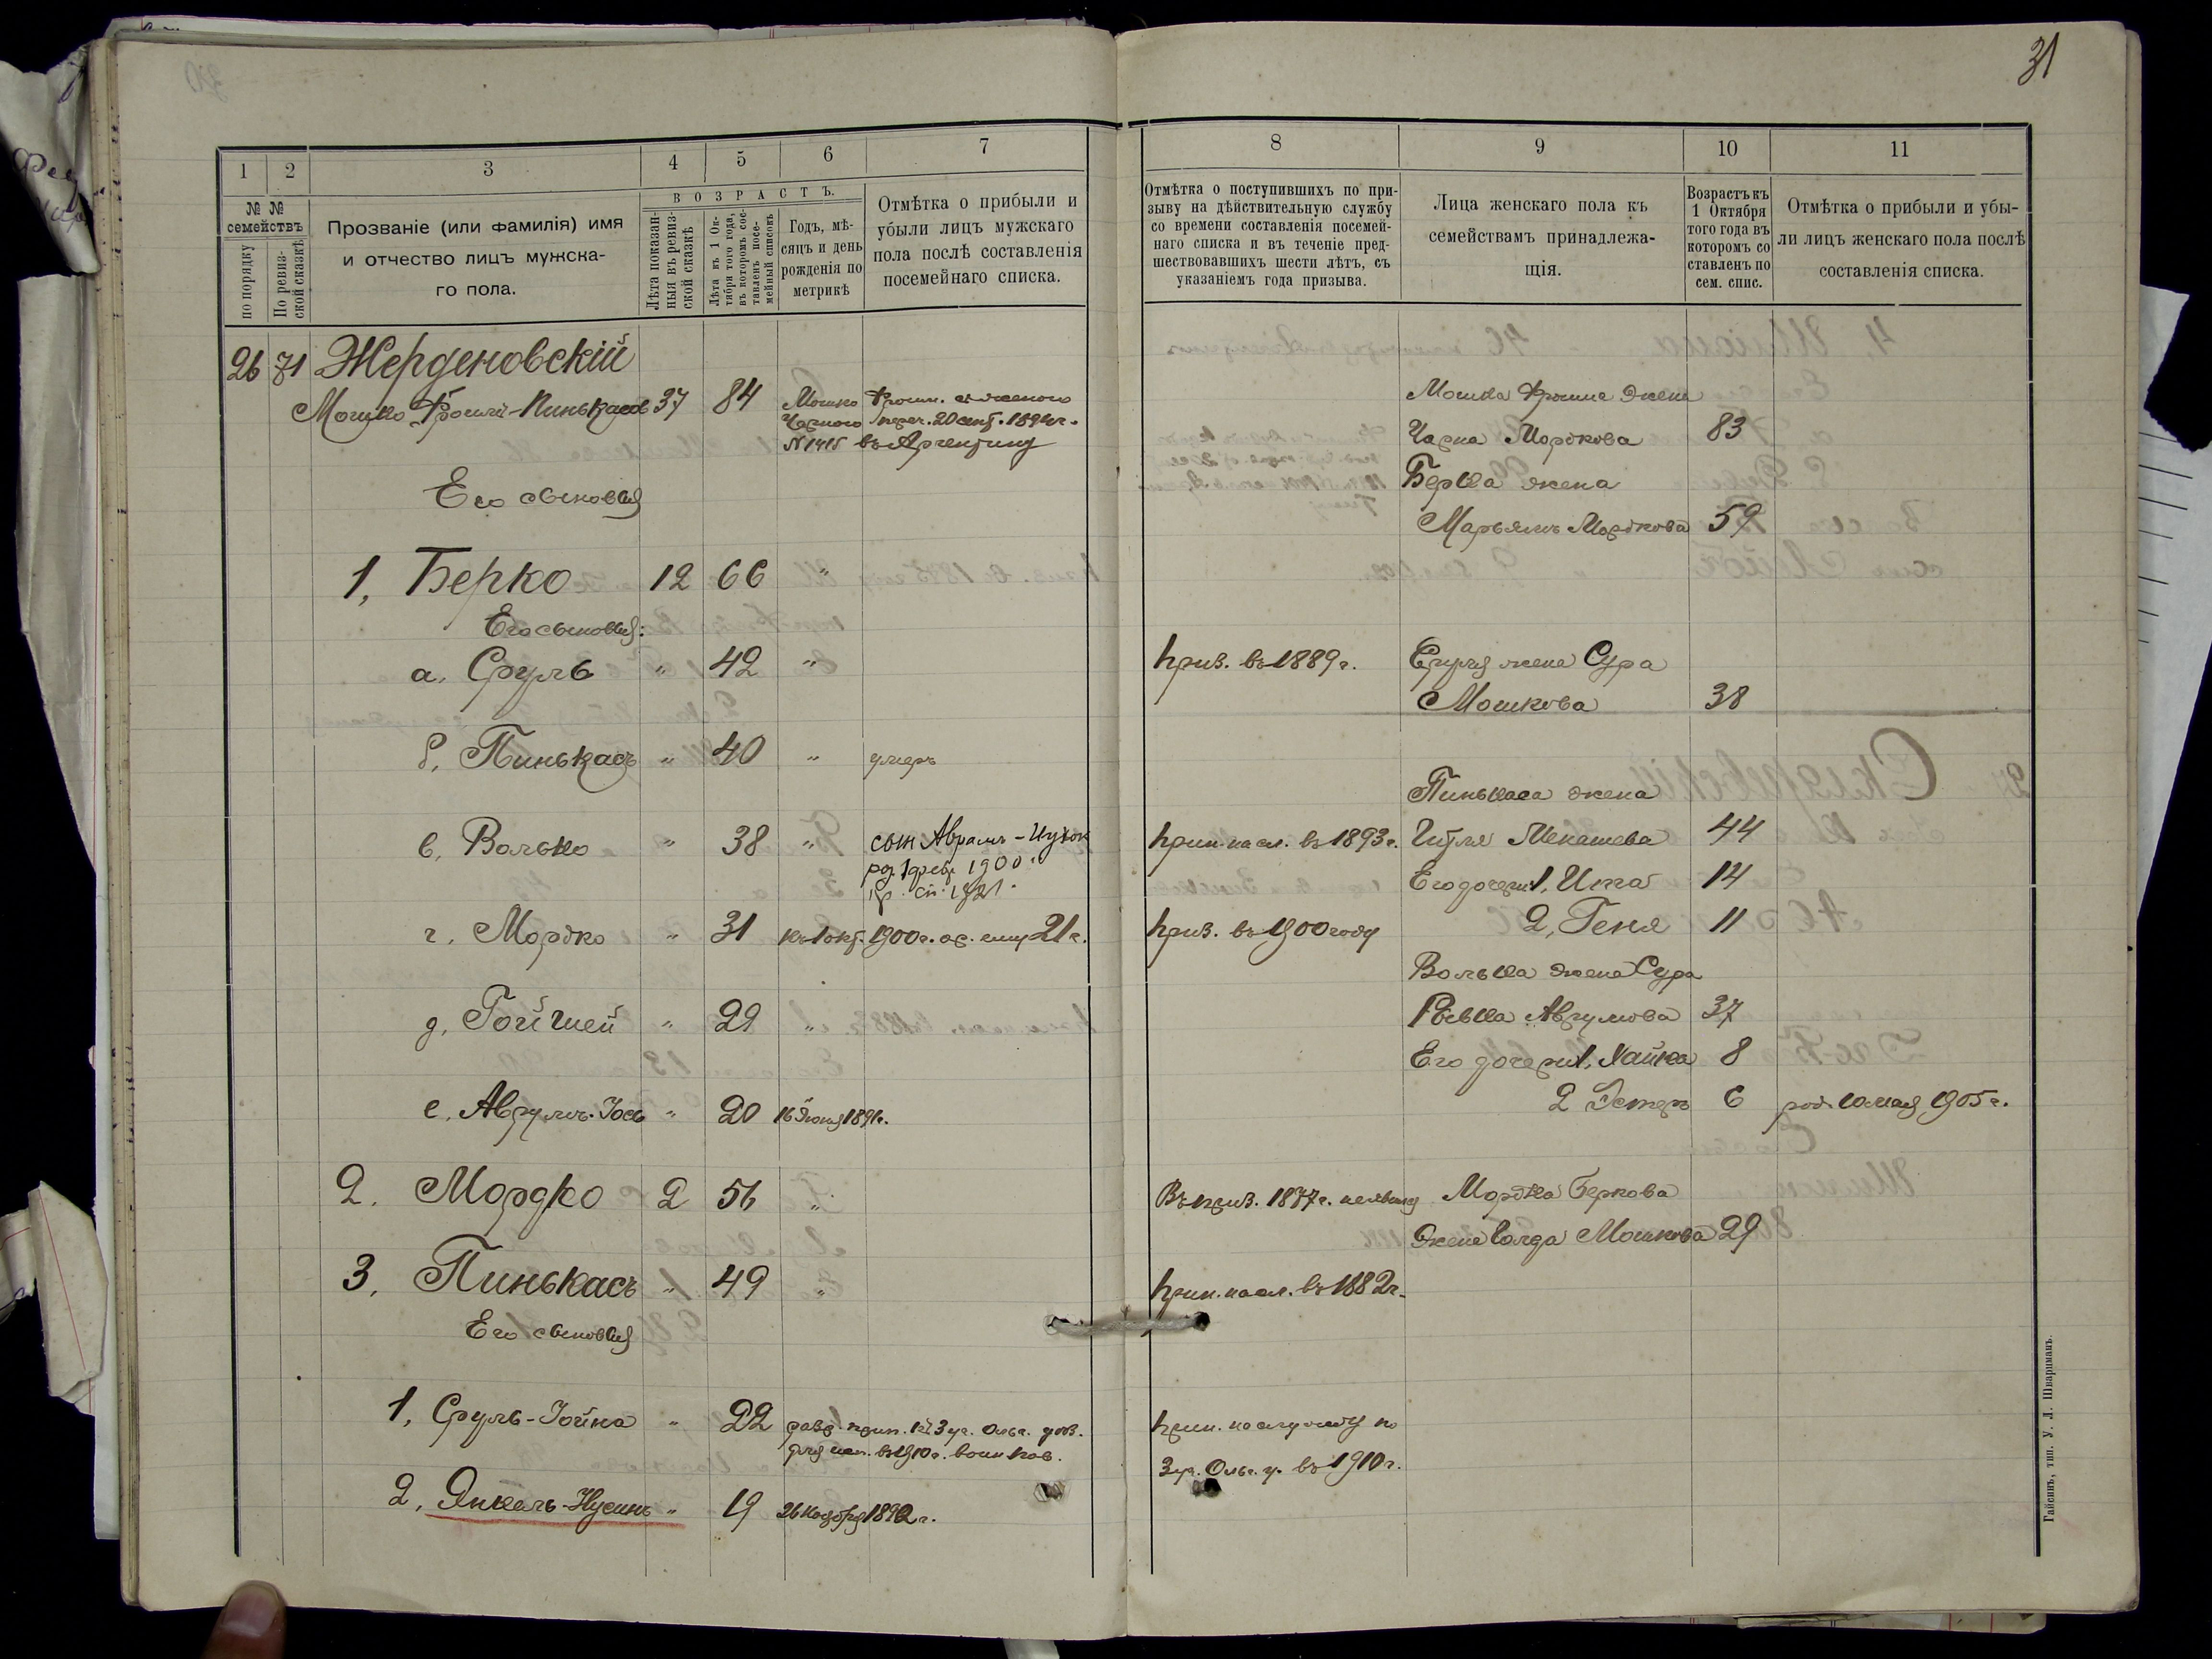 31
1 2 3 4 5 6 7
№ №
семействъ
по порядку
По ревиз-
ской сказкѣ
Прозваніе (или фамилія) имя
и отчество лицъ мужска-
го пола.
ВОЗРАСТЪ.
Лѣта показан-
ныя въ ревиз-
ской сказкѣ
Лѣта къ 1 Ок-
тября того года,
въ которомъ сос-
тавленъ посе-
мейный списокъ
Годъ, мѣ-
сяцъ и день
рожденія по
метрикѣ
Отмѣтка о прибыли и
убыли лицъ мужскаго
пола послѣ составленія
посемейнаго списка.
26 71 Жерденовскій
Мошко Фроим-Пинькасов 37 84 Мошко Фроим. с женою
Чарною пер. 20 сент. 1894 г.
N 1415 въ Аргентину
Его сыновья
1, Берко 12 66 "
Его сыновья:
а. Сруль " 42 "
б. Пинькасъ " 40 " умеръ
в. Волько " 38 " сын Аврамъ-Ицхок
род. 1 февр. 1900 г.
пр. сп. 1921.
г. Мордко " 31 къ 1 окт. 1900 г. ему 21 г.
д. Гойшей " 29 "
е. Аврумъ-Іось " 20 16 Іюня 1891 г.
2. Мордко 2 56 "
3. Пинькасъ " 49 "
Его сыновья
1, Сруль-Іойна " 22 прин. къ 3 уч. Ольг. у
въ 1910 г.
2, Янкель-Нусинъ " 19 26 Ноября 1892 г.
8 9 10 11
Отмѣтка о поступившихъ по при-
зыву на дѣйствительную службу
со времени составленія посемей-
наго списка и въ теченіе пред-
шествовавшихъ шести лѣтъ, съ
указаніемъ года призыва.
Лица женскаго пола къ
семействамъ принадлежа-
щія.
Возрастъ къ
1 Октября
того года въ
которомъ со
ставленъ по
сем. спис.
Отмѣтка о прибыли и убы-
ли лицъ женскаго пола послѣ
составленія списка.
Мошка Фроима жена
Чарна Мордкова 83
Берка жена
Марьямъ Мордкова 59
приз. въ 1889 г. Сруля жена Сура
Мошкова 38
Пинькаса жена
прин. на сл. въ 1893 г. Гитля Менашева 44
Его дочери 1, Ита 14
приз. въ 1900 году 2, Геня 11
Волька жена Сура
Ривка Аврумова 37
Его дочери 1, Хайка 8
2 Эстеръ 6 род. 10 мая 1905 г.
Въ приз. 1877 г. неявился Мордка Беркова
жена Голда Мошкова 29
прин. на сл. въ 1882 г.
прин. на службу по
3 уч. Ольг. у. въ 1910 г.
Гайсинъ, тип. У. Л. Шварцманъ.